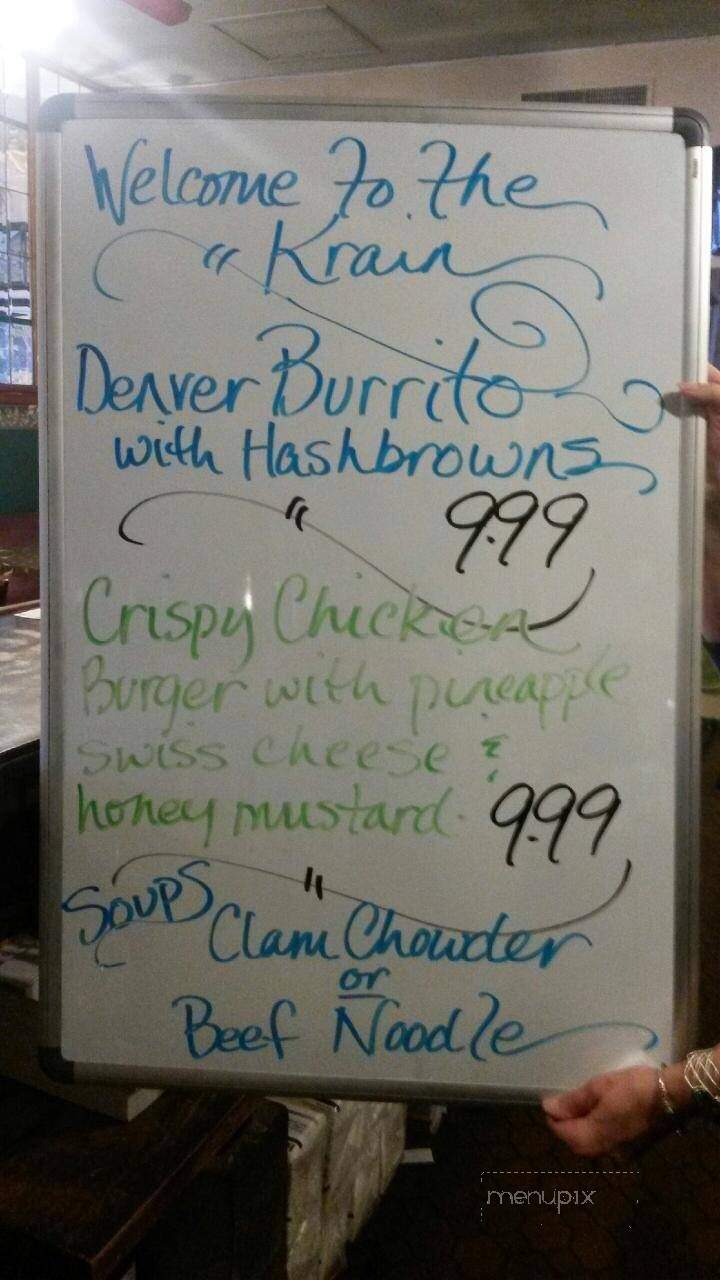 Welcome To The
Krain
Denver Burrito
with Hashbrowns
9.99
Crispy Chicken
Burger with pineapple
swiss cheese &
honey mustard. 9.99
Soups Clam Chowder
or
Beef Noodle
menupix